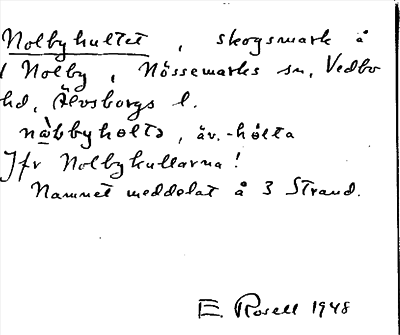 Nolbyhultet, skogsmark å
1 Nolby, Nössemarks sn, Vedbo
hd, Älvsborgs l.
nàbbyhòltə, äv. -hòlta
Jfr Nolbyhultarna!
Namnet meddelat å 3 Strand.
E. Rosell 1948